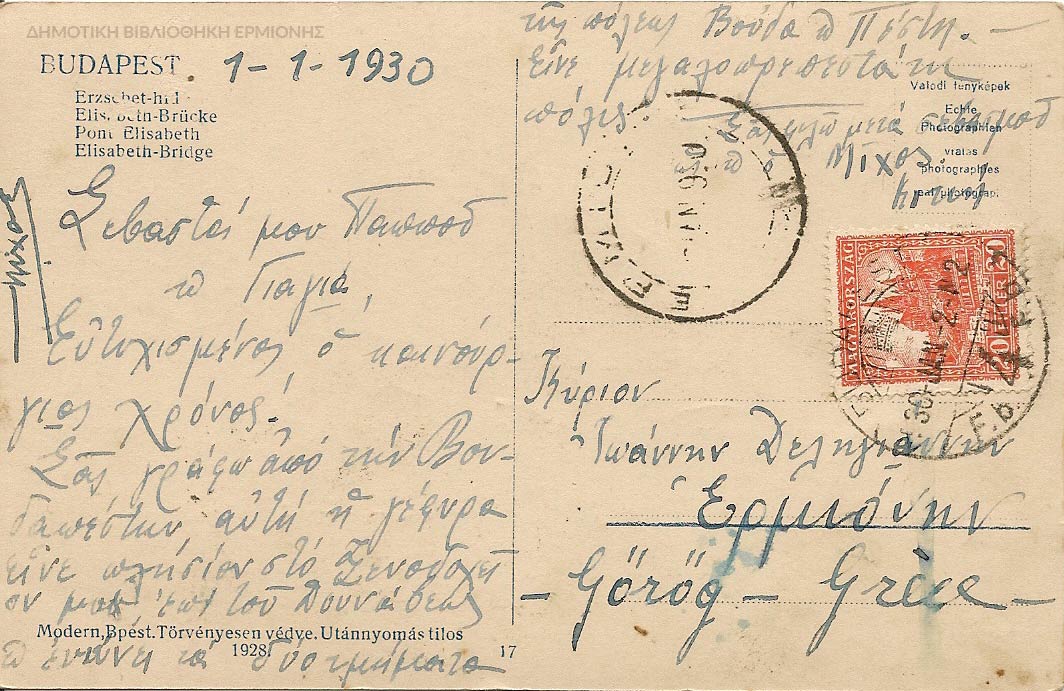 ΔΗΜΟΤΙΚΗ ΒΙΒΛΙΟΘΗΚΗ ΕΡΜΙΟΝΗΣ
BUDAPEST. 1-1-1930
Erzsébet-híd
Elisabeth-Brücke
Pont Elisabeth
Elisabeth-Bridge
Μίχος
Σεβαστέ μου Παππού
κ Γιαγιά,
Εὐτυχισμένος ὁ καινούρ-
γιος χρόνος.
Σᾶς γράφω ἀπό τήν Βου-
δαπέστην, αὐτή ἡ γέφυρα
εἶνε πλησίον στό ξενοδοχεῖ
ον μας, ἐπί τοῦ Δουνάβεως
κ ἑνώνει τά δύο τμήματα
Modern, Bpest. Törvényesen védve. Utánnyomás tilos
1928
17
τῆς πόλεως Βούδα κ Πέστη.-
Εἶνε μεγαλοπρεπεστάτη
πόλις
Σᾶς φιλῶ μετά σεβασμοῦ
Μίχος
Valódi fényképek
Echte
Photographien
vraies
photographies
real photograp.
MAGYARORSZÁG
20 FILLÉR 20
BUDAPEST
30 JAN-2
JAN 930
Κύριον
Ἰωάννην Δεληγιάννην
Ἑρμιόνην
- Görög - Grèce -